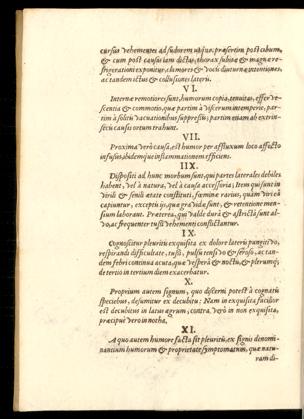 cursus vehementes ad sudorem usque, præsertim post cibum,
& cum post causas iam dictas, thorax subitæ & magnæ re-
frigerationi exponitur, clamores & vocis diuturnæ intentiones,
ac tandem ictus & collisiones lateris.
VI.
Internæ remotiores sunt, humorum copia, tenuitas, efferve-
scentia & commotio, quæ partim à viscerum intemperie, par-
tim à solitis vacuationibus suppressis; partim etiam ab extrin-
secis causis ortum trahunt.
VII.
Proxima verò causa est humor per affluxum loco affecto
infusus, ibidemque inflammationem efficiens.
IIX.
Dispositi ad hunc morbum sunt, qui partes laterales debiles
habent, vel à natura, vel à causa accessoria; Item qui sunt in
virili & senili ætate constituti, fæminæ rarius, quàm viri eò
capiuntur, exceptis ijs, quæ gravidæ sunt, & retentione men-
sium laborant. Præterea, qui valde dura & astricta sunt al-
vo, ac frequenter tussi vehementi conflictantur.
IX.
Cognoscitur pleuritis exquisita ex dolore lateris pungitivo,
respirandi difficultate, tussi, pulsu tenso & serroso, ac tan-
dem febri continua acuta, quæ vesperâ & noctu, & plerumq;
de tertio in tertium diem exacerbatur.
X.
Proprium autem signum, quo discerni potest à cognatis
speciebus, desumitur ex decubitu: Nam in exquisita facilior
est decubitus in latus ægrum, contra, verò in non exquisita,
præcipuè verò in notha.
XI.
A quo autem humore facta sit pleuritis, ex signis denomi-
nantium humorum & proprietate symptomatum, quæ natu-
ram di-